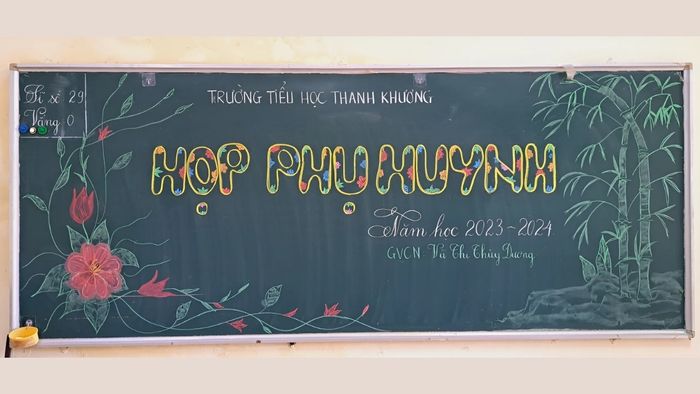 Sĩ số 29
Vắng 0
TRƯỜNG TIỂU HỌC THANH KHƯƠNG
HỌP PHỤ HUYNH
Năm học 2023-2024
GVCN: Vũ Thị Thùy Dương